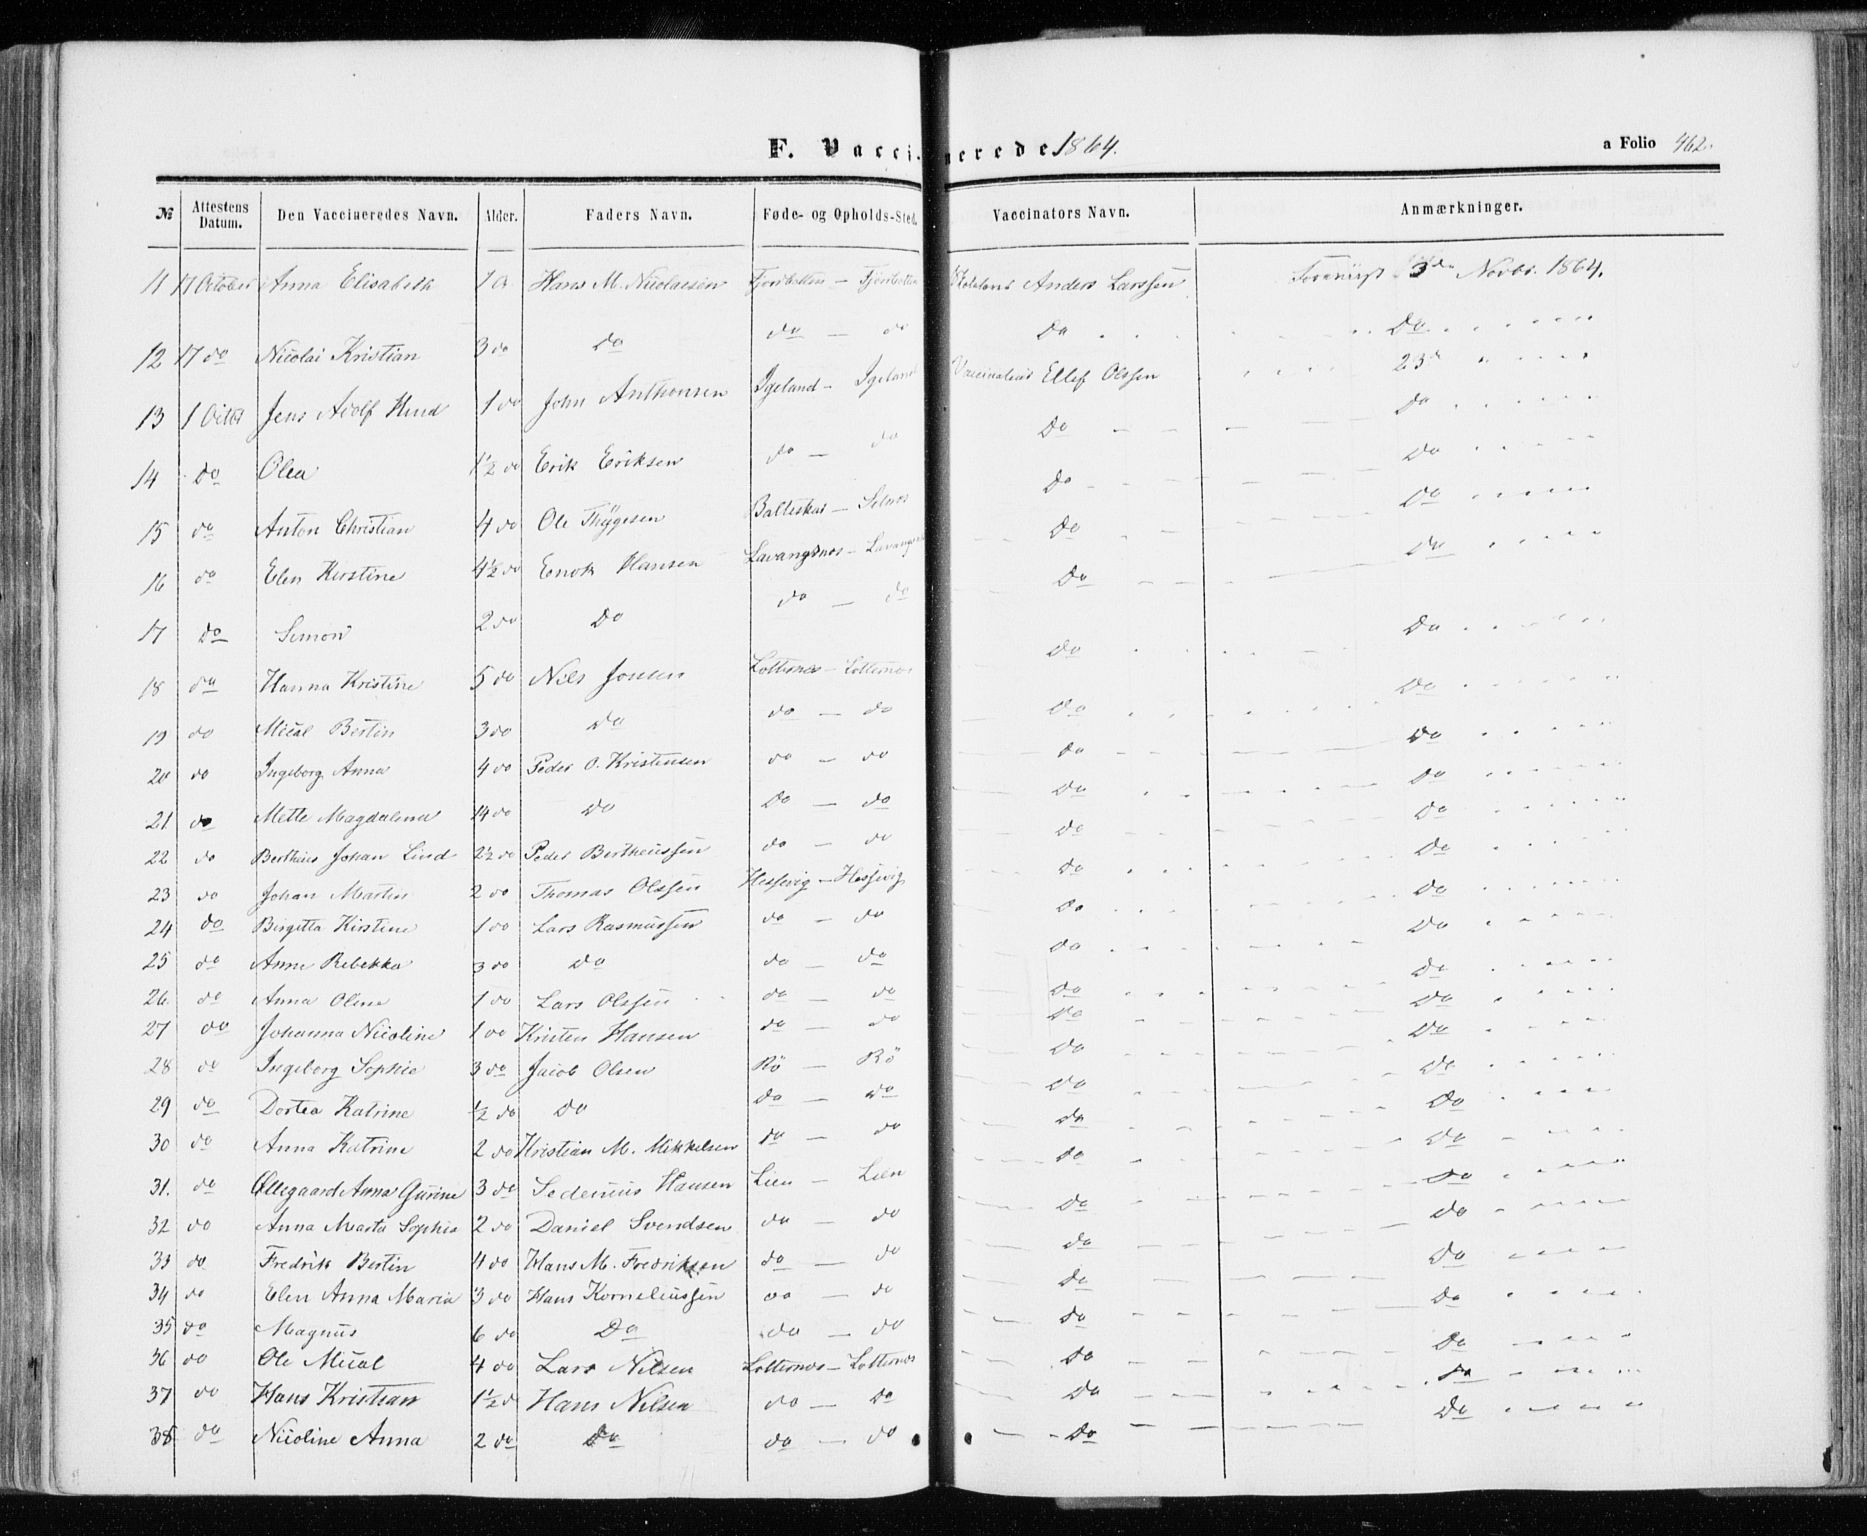 F. Vaccinerede 1864. a Folio 462.
№ Attestens Datum. Den Vaccineredes Navn. Alder. Faders Navn. Føde- og Opholds-Sted. Vaccinators Navn. Anmærkninger.
11 17 October Anna Elisabeth 1 a Hans M. Nicolaisen Fjordbotten - Fjordbotten Anders Larssen 3die Novbr. 1864.
12 17 do Nicolai Kristian 3 do Do do - do Do Do
13 1 Octbr Jens Adolf Knud 1 do John Anthonsen Igeland - Igeland Vaccinateur Ellef Olssen 23d
14 do Olea 1½ do Erik Eriksen do - do Do Do
15 do Anton Christian 4 do Ole Thygesen Balteskar - Selnes Do Do
16 do Elen Kirstine 4½ do Enok Hansen Lavangsnes - Lavangsnes Do Do
17 Do Simon 2 do Do do - do Do Do
18 do Hanna Kristine 5 do Nils Jonsen Lotternes - Lotternes Do Do
19 do Mical Bertin 3 do Do do - do Do Do
20 do Ingeborg Anna 4 do Peder O. Kristensen do - do Do Do
21 do Mette Magdalena 14 do Do Do - do Do Do
22 do Bertheus Johan Lind 2½ do Peder Bertheussen do - do Do Do
23 do Johan Martin 2 do Thomas Olssen Hessevig - Hessevig Do Do
24 do Birgitta Kirstine 1 do Lars Rasmussen do - do Do Do
25 do Anne Rebekka 3 do Do do - do Do Do
26 do Anna Oline 1 do Lars Olssen do - do Do Do
27 do Johanna Nicoline 1 do Kristen Hansen do - do Do Do
28 do Ingeborg Sophie 3 do Jacob Olsen Rö - Rö Do Do
29 do Dortea Katrine ½ do Do do - do Do Do
30 do Anna Katrine 2 do Kristian M. Mikkelsen do - do Do Do
31. do Øllegaard Anna Gurine 3 do Sedenius Hansen Lien - Lien Do Do
32 do Anna Marta Sophia 2 do Daniel Svendsen do - do Do Do
33 do Fredrik Bertin 4 do Hans M. Fredriksen do - do Do Do
34 do Elen Anna Maria 3 do Hans Korneliussen do - do Do Do
35 do Magnus 6 do Do do - do Do Do
36 do Ole Mical 4 do Lars Nilsen Lotternes - Lotternes Do Do
37 do Hans Kristian 1½ d Hans Nilsen do - Do Do Do
38 do Nicoline Anna 2 do Do do - do Do Do